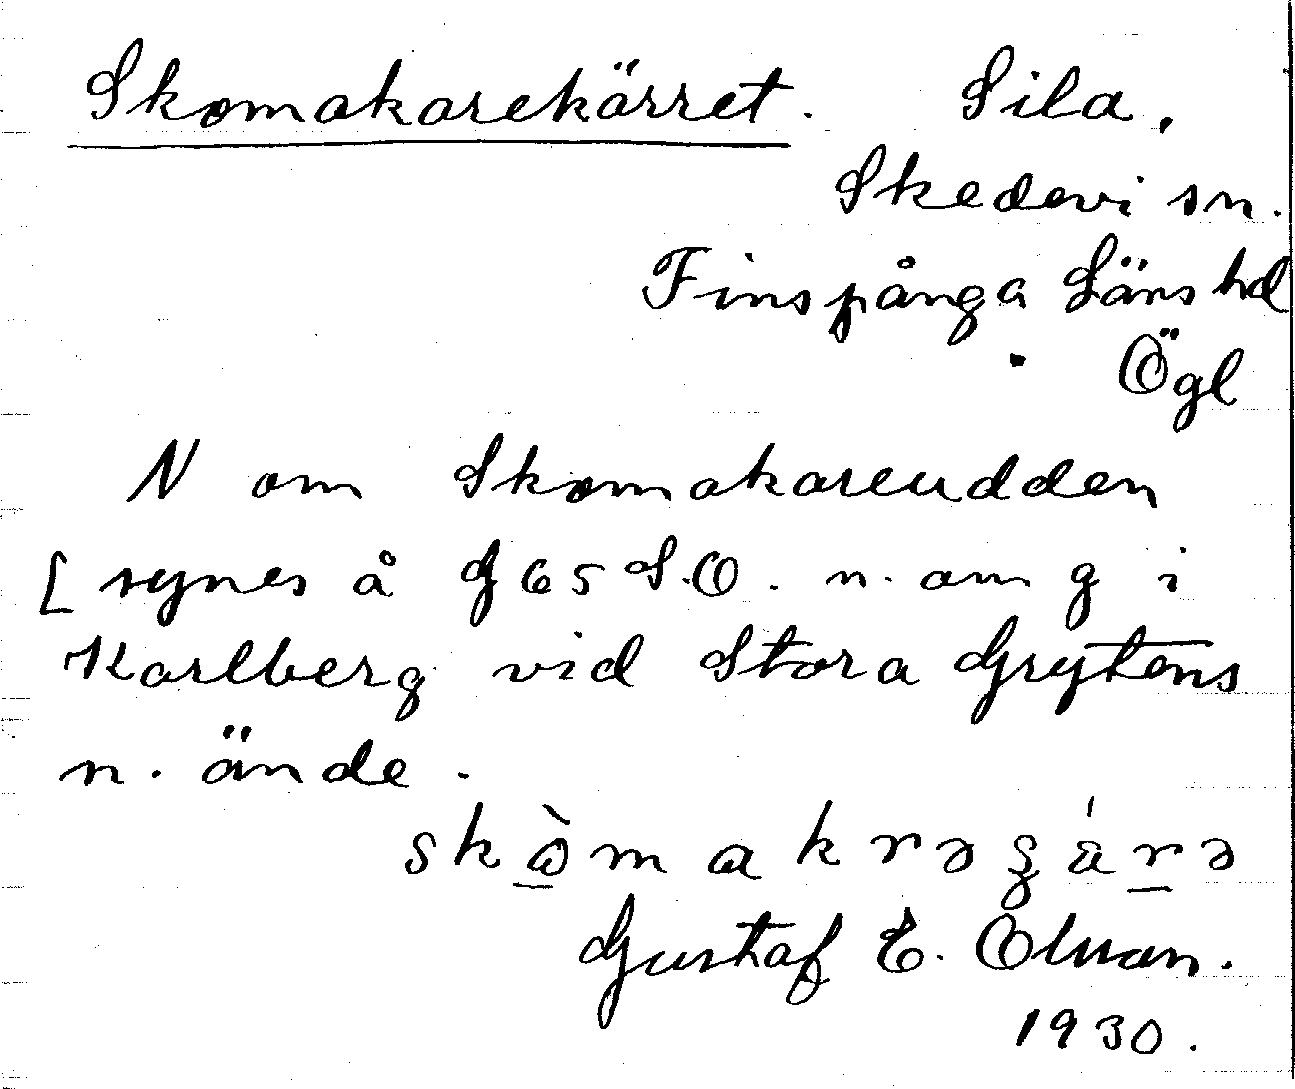 Skomakarekärret. Sila,
Skedevi sn.
Finspånga Läns hd
Ögl
N om Skomakareudden
[ synes å G 65 S.O. n. om g i
Karlberg vid Stora Grytens
n. ände.
Gustaf E. Olsson.
1930.